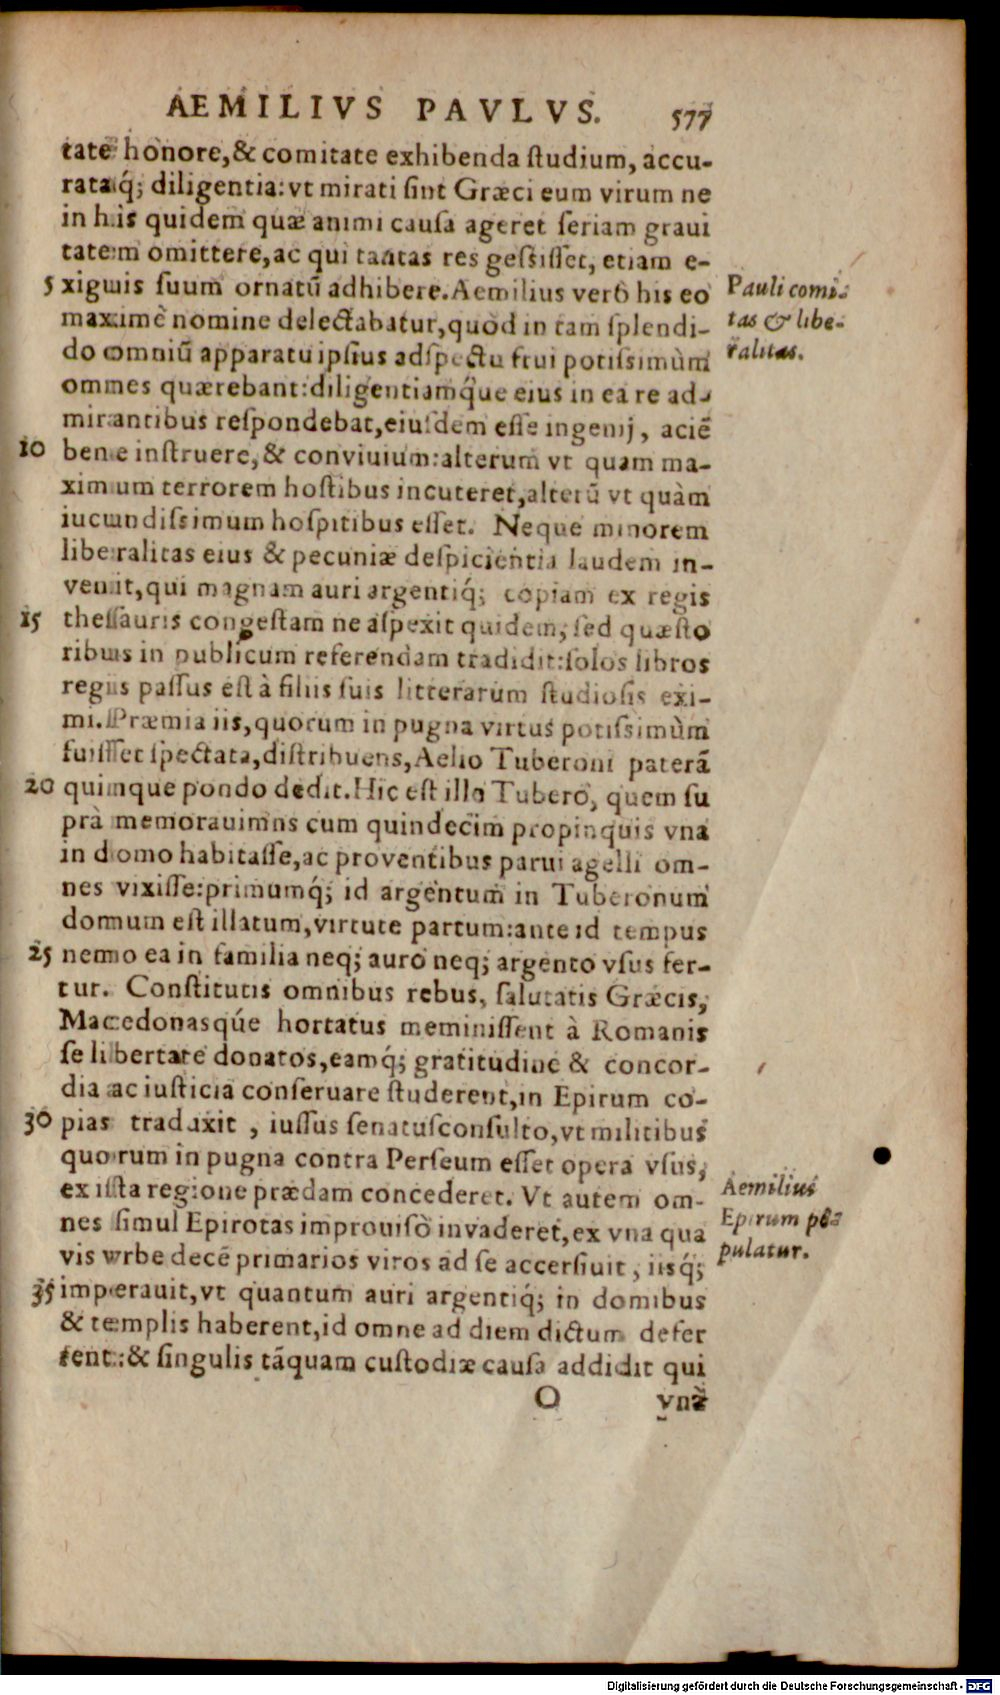 AEMILIVS PAVLVS. 577
tatē honore,& comitate exhibenda studium, accu-
rataq́; diligentia: vt mirati sint Græci eum virum ne
in his quidem quæ animi causa ageret seriam graui
tatem omittere, ac qui tantas res gessisset, etiam e-
5 xiguis suum ornatū adhibere. Aemilius verò his eo
Pauli comi-
maximè nomine delectabatur, quòd in tam splendi-
tas & libe-
do omniū apparatu ipsius adspectu frui potissimùm
ralitas.
omnes quærebant: diligentiamq́ue eius in ea re ad-
mirantibus respondebat, eiusdem esse ingenij, aciē
10 bene instruere, & conuiuium: alterum vt quam ma-
ximum terrorem hostibus incuteret, alterū vt quàm
iucundissimum hospitibus esset. Neque minorem
liberalitas eius & pecuniæ despicientia laudem in-
venit, qui magnam auri argentiq́; copiam ex regis
15 thesauris congestam ne aspexit quidem, sed quæsto
ribus in publicum referendam tradidit: solos libros
regiis passus est à filiis suis litterarum studiosis exi-
mi. Præmia iis, quorum in pugna virtus potissimùm
fuisset spectata, distribuens, Aelio Tuberoni paterā
20 quinque pondo dedit. Hic est ille Tubero, quem su
prà memorauimns cum quindecim propinquis vna
in domo habitasse, ac proventibus parui agelli om-
nes vixisse: primumq́; id argentum in Tuberonum
domum est illatum, virtute partum: ante id tempus
25 nemo ea in familia neq; auro neq; argento vsus fer-
tur. Constitutis omnibus rebus, salutatis Græcis,
Macedonasq́ue hortatus meminissent à Romanis
se libertate donatos, eamq́; gratitudine & concor-
dia ac iusticia conseruare studerent, in Epirum co-
30 pias traduxit, iussus senatusconsulto, vt militibus
quorum in pugna contra Perseum esset opera vsus,
ex ista regione prædam concederet. Vt autem om-
Aemilius
nes simul Epirotas improuisò invaderet, ex vna qua
Epirum pō
vis vrbe decē primarios viros ad se accersiuit, iisq́;
pulatur.
35 imperauit, vt quantum auri argentiq́; in domibus
& templis haberent, id omne ad diem dictum defer
rent: & singulis tāquam custodiæ causa addidit qui
O vnā
Digitalisierung gefördert durch die Deutsche Forschungsgemeinschaft - DFG